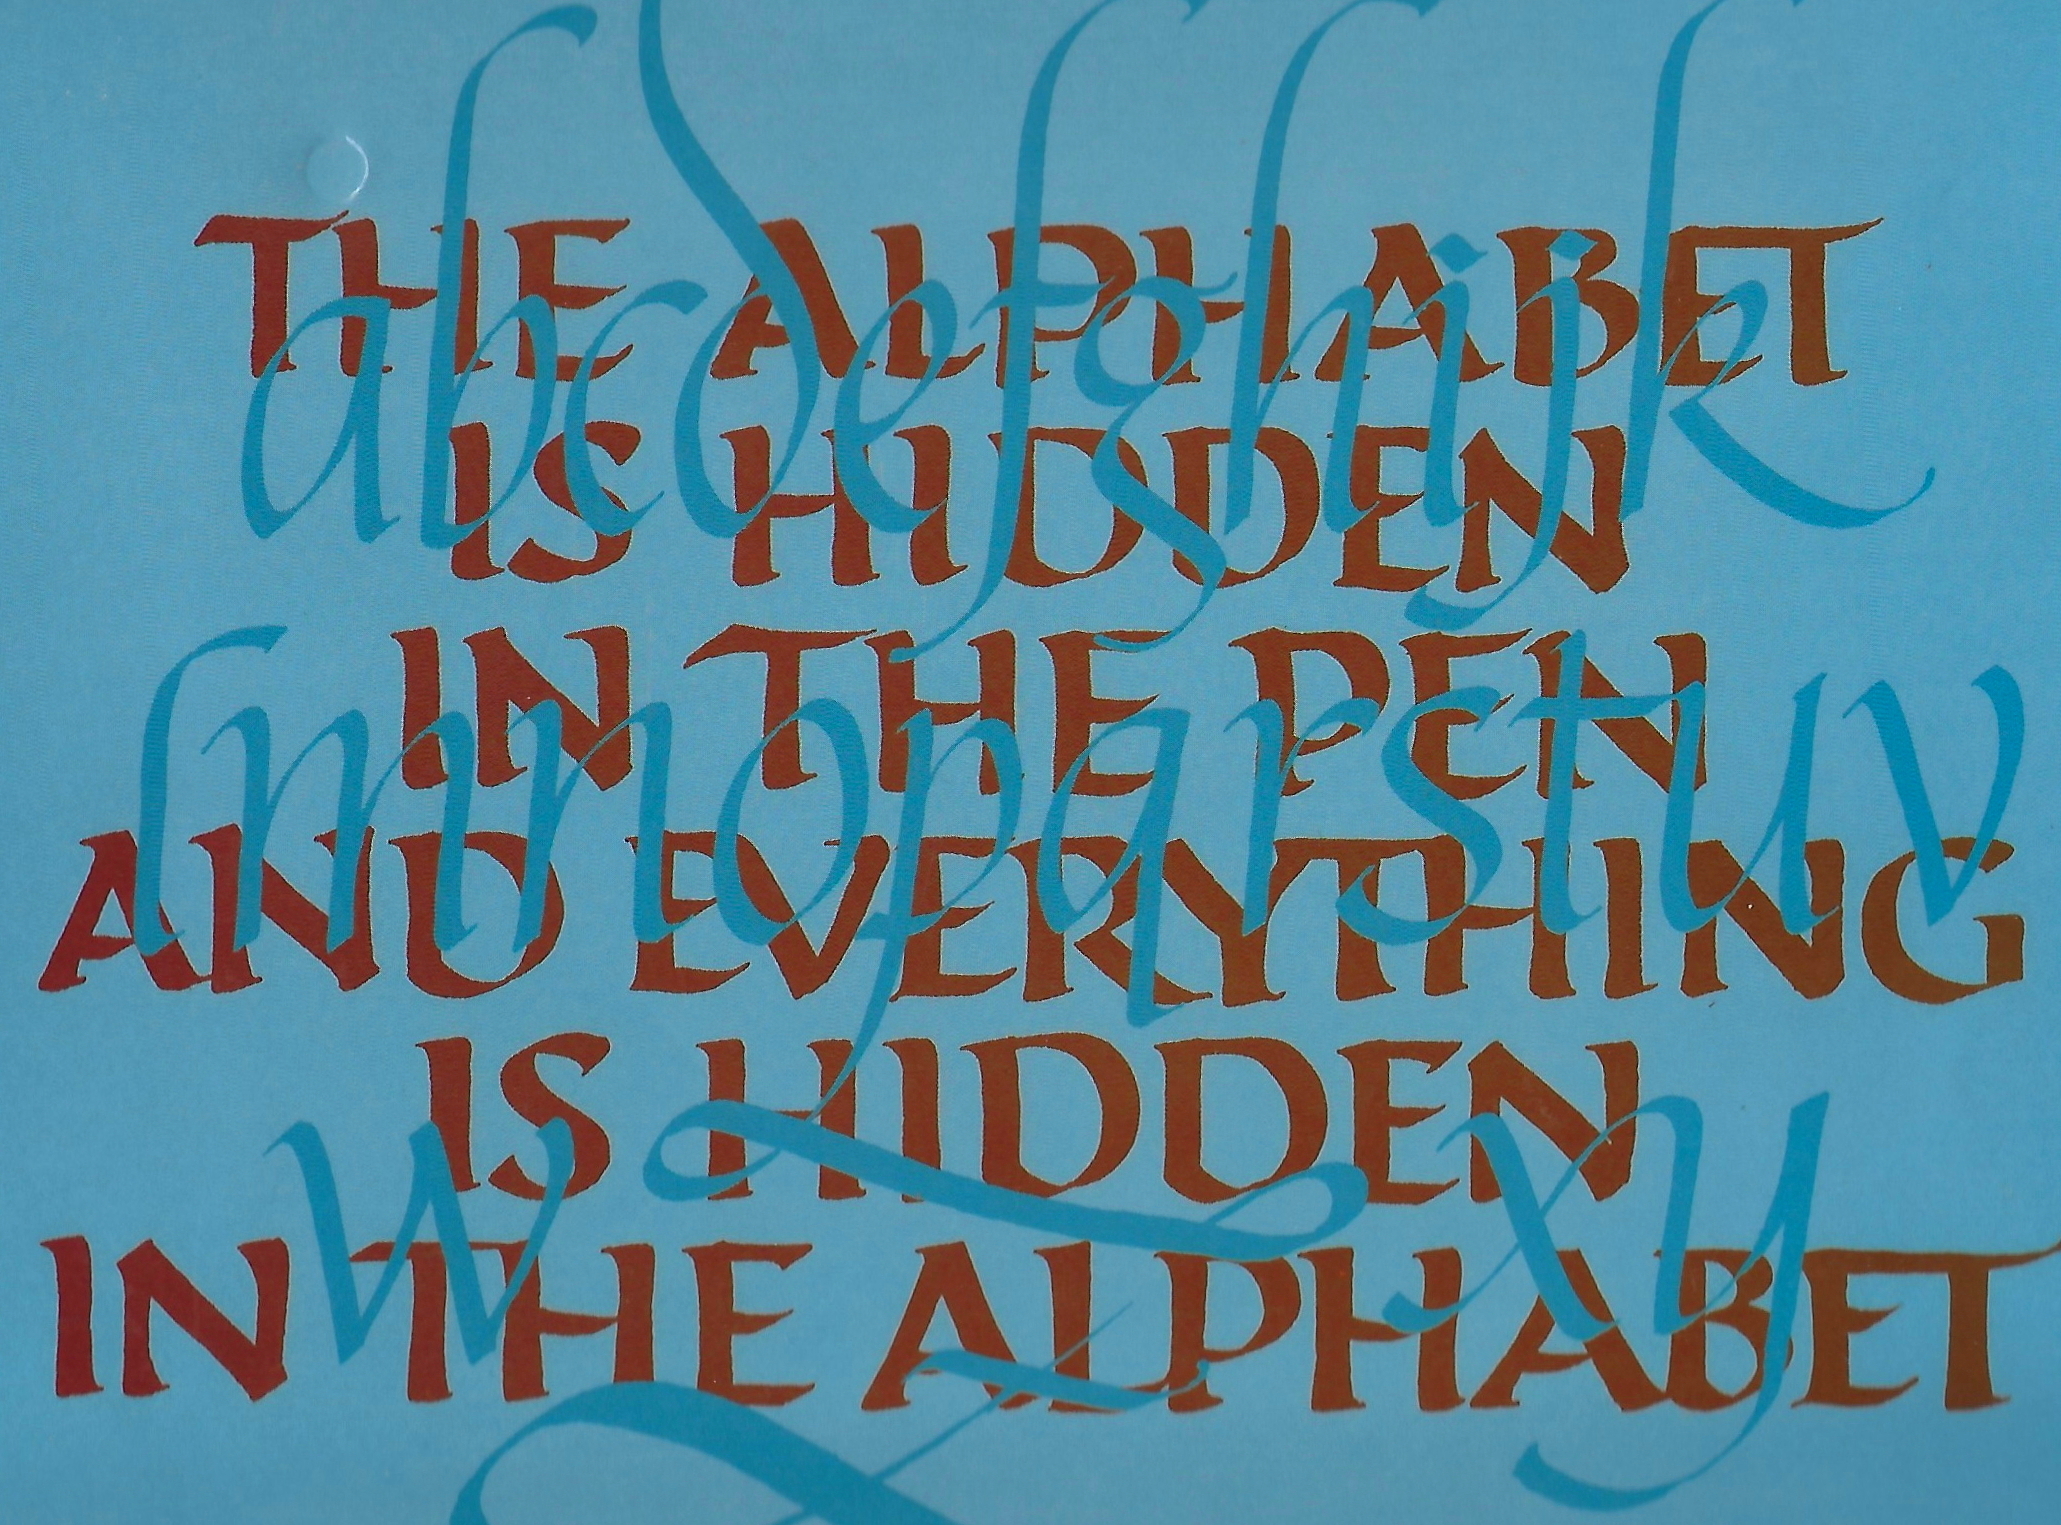 THE ALPHABET
abcdefghijk
IS HIDDEN
IN THE PEN
lmnopqrstuv
AND EVERYTHING
IS HIDDEN
wxy
IN THE ALPHABET
z